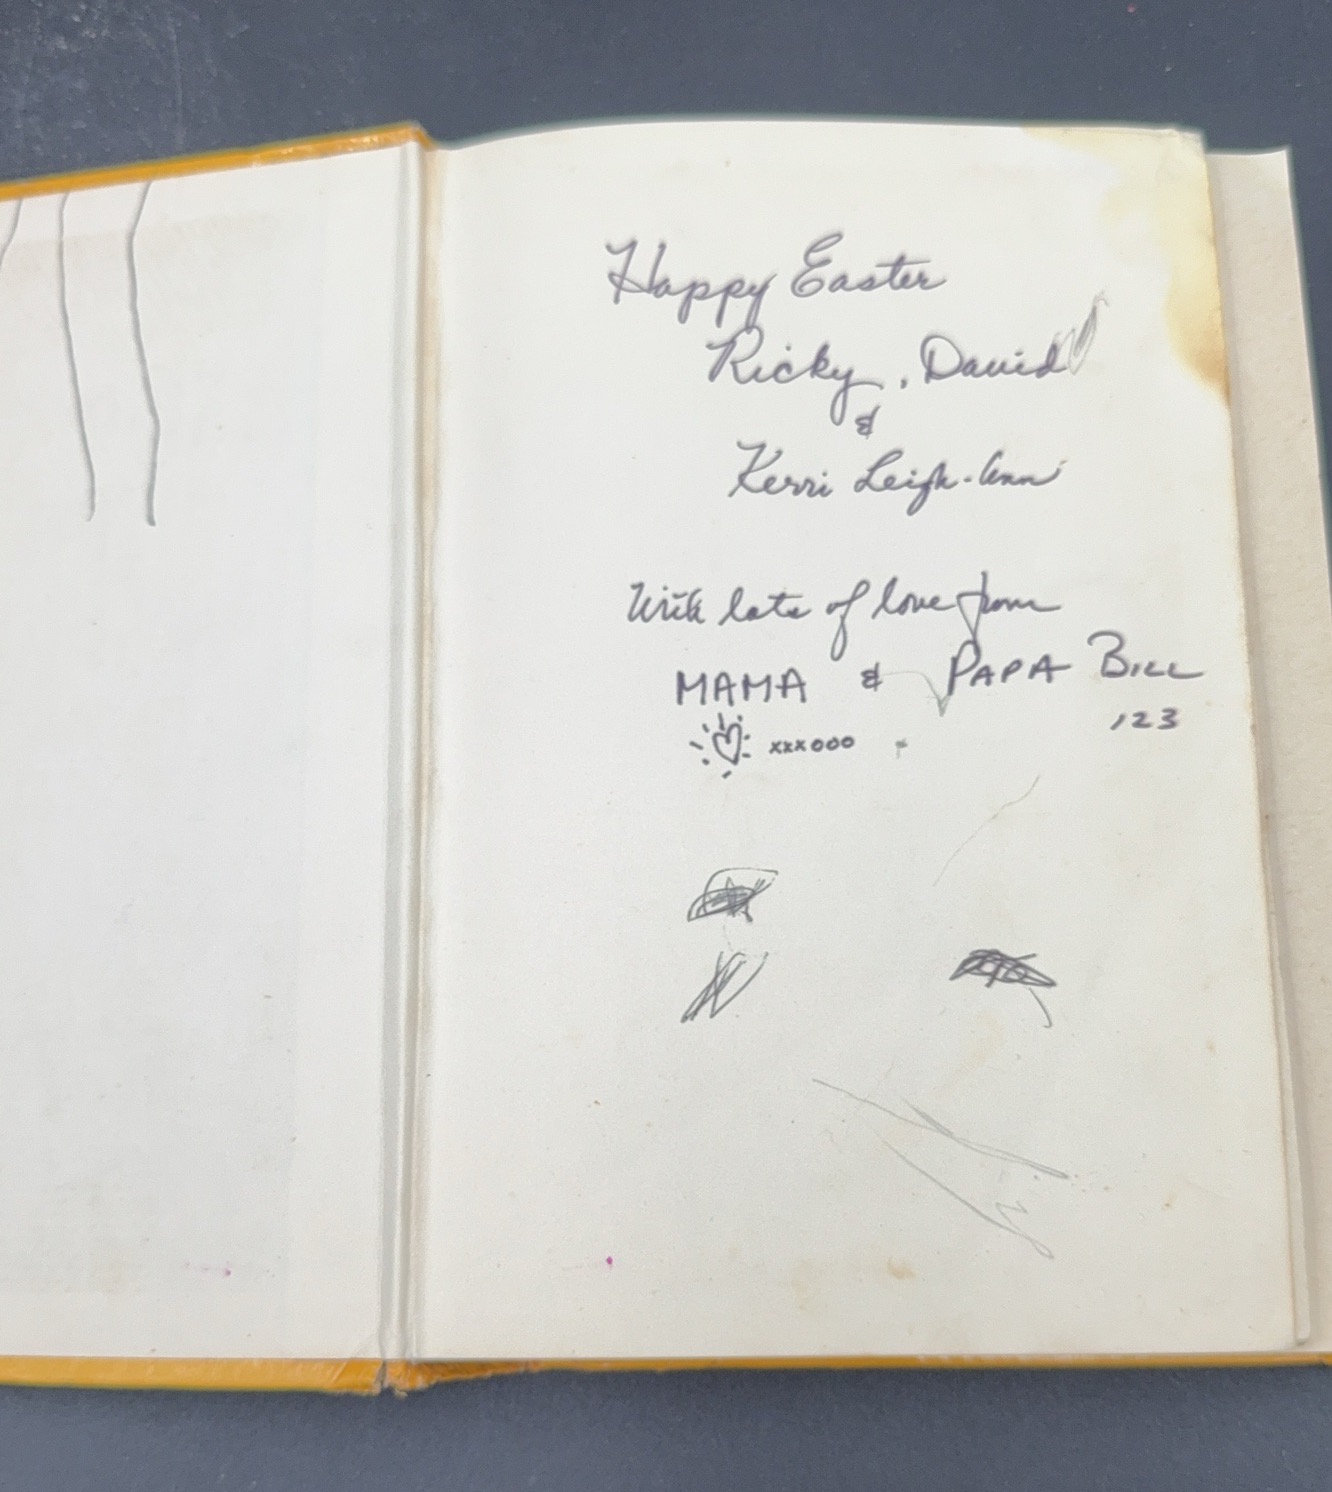 Happy Easter
Ricky, David
&
Kerri Leigh-Ann
With lots of love from
MAMA & PAPA BILL
123
xxxooo